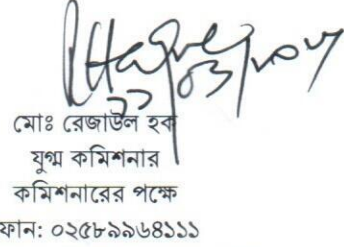 মোঃ রেজাউল হক
যুগ্ম কমিশনার
কমিশনারের পক্ষে
ফোন: ০২৫৮৯৯৬৪১১১